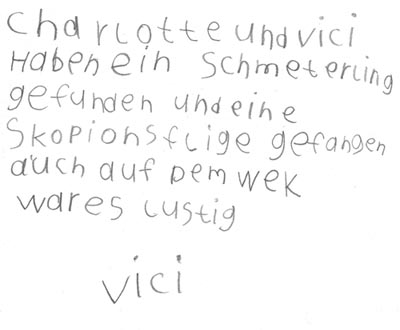 Charlotte und vici
Haben ein Schmeterling
gefunden und eine
Skopionsflige gefangen
auch auf Dem wek
wares lustig
vici